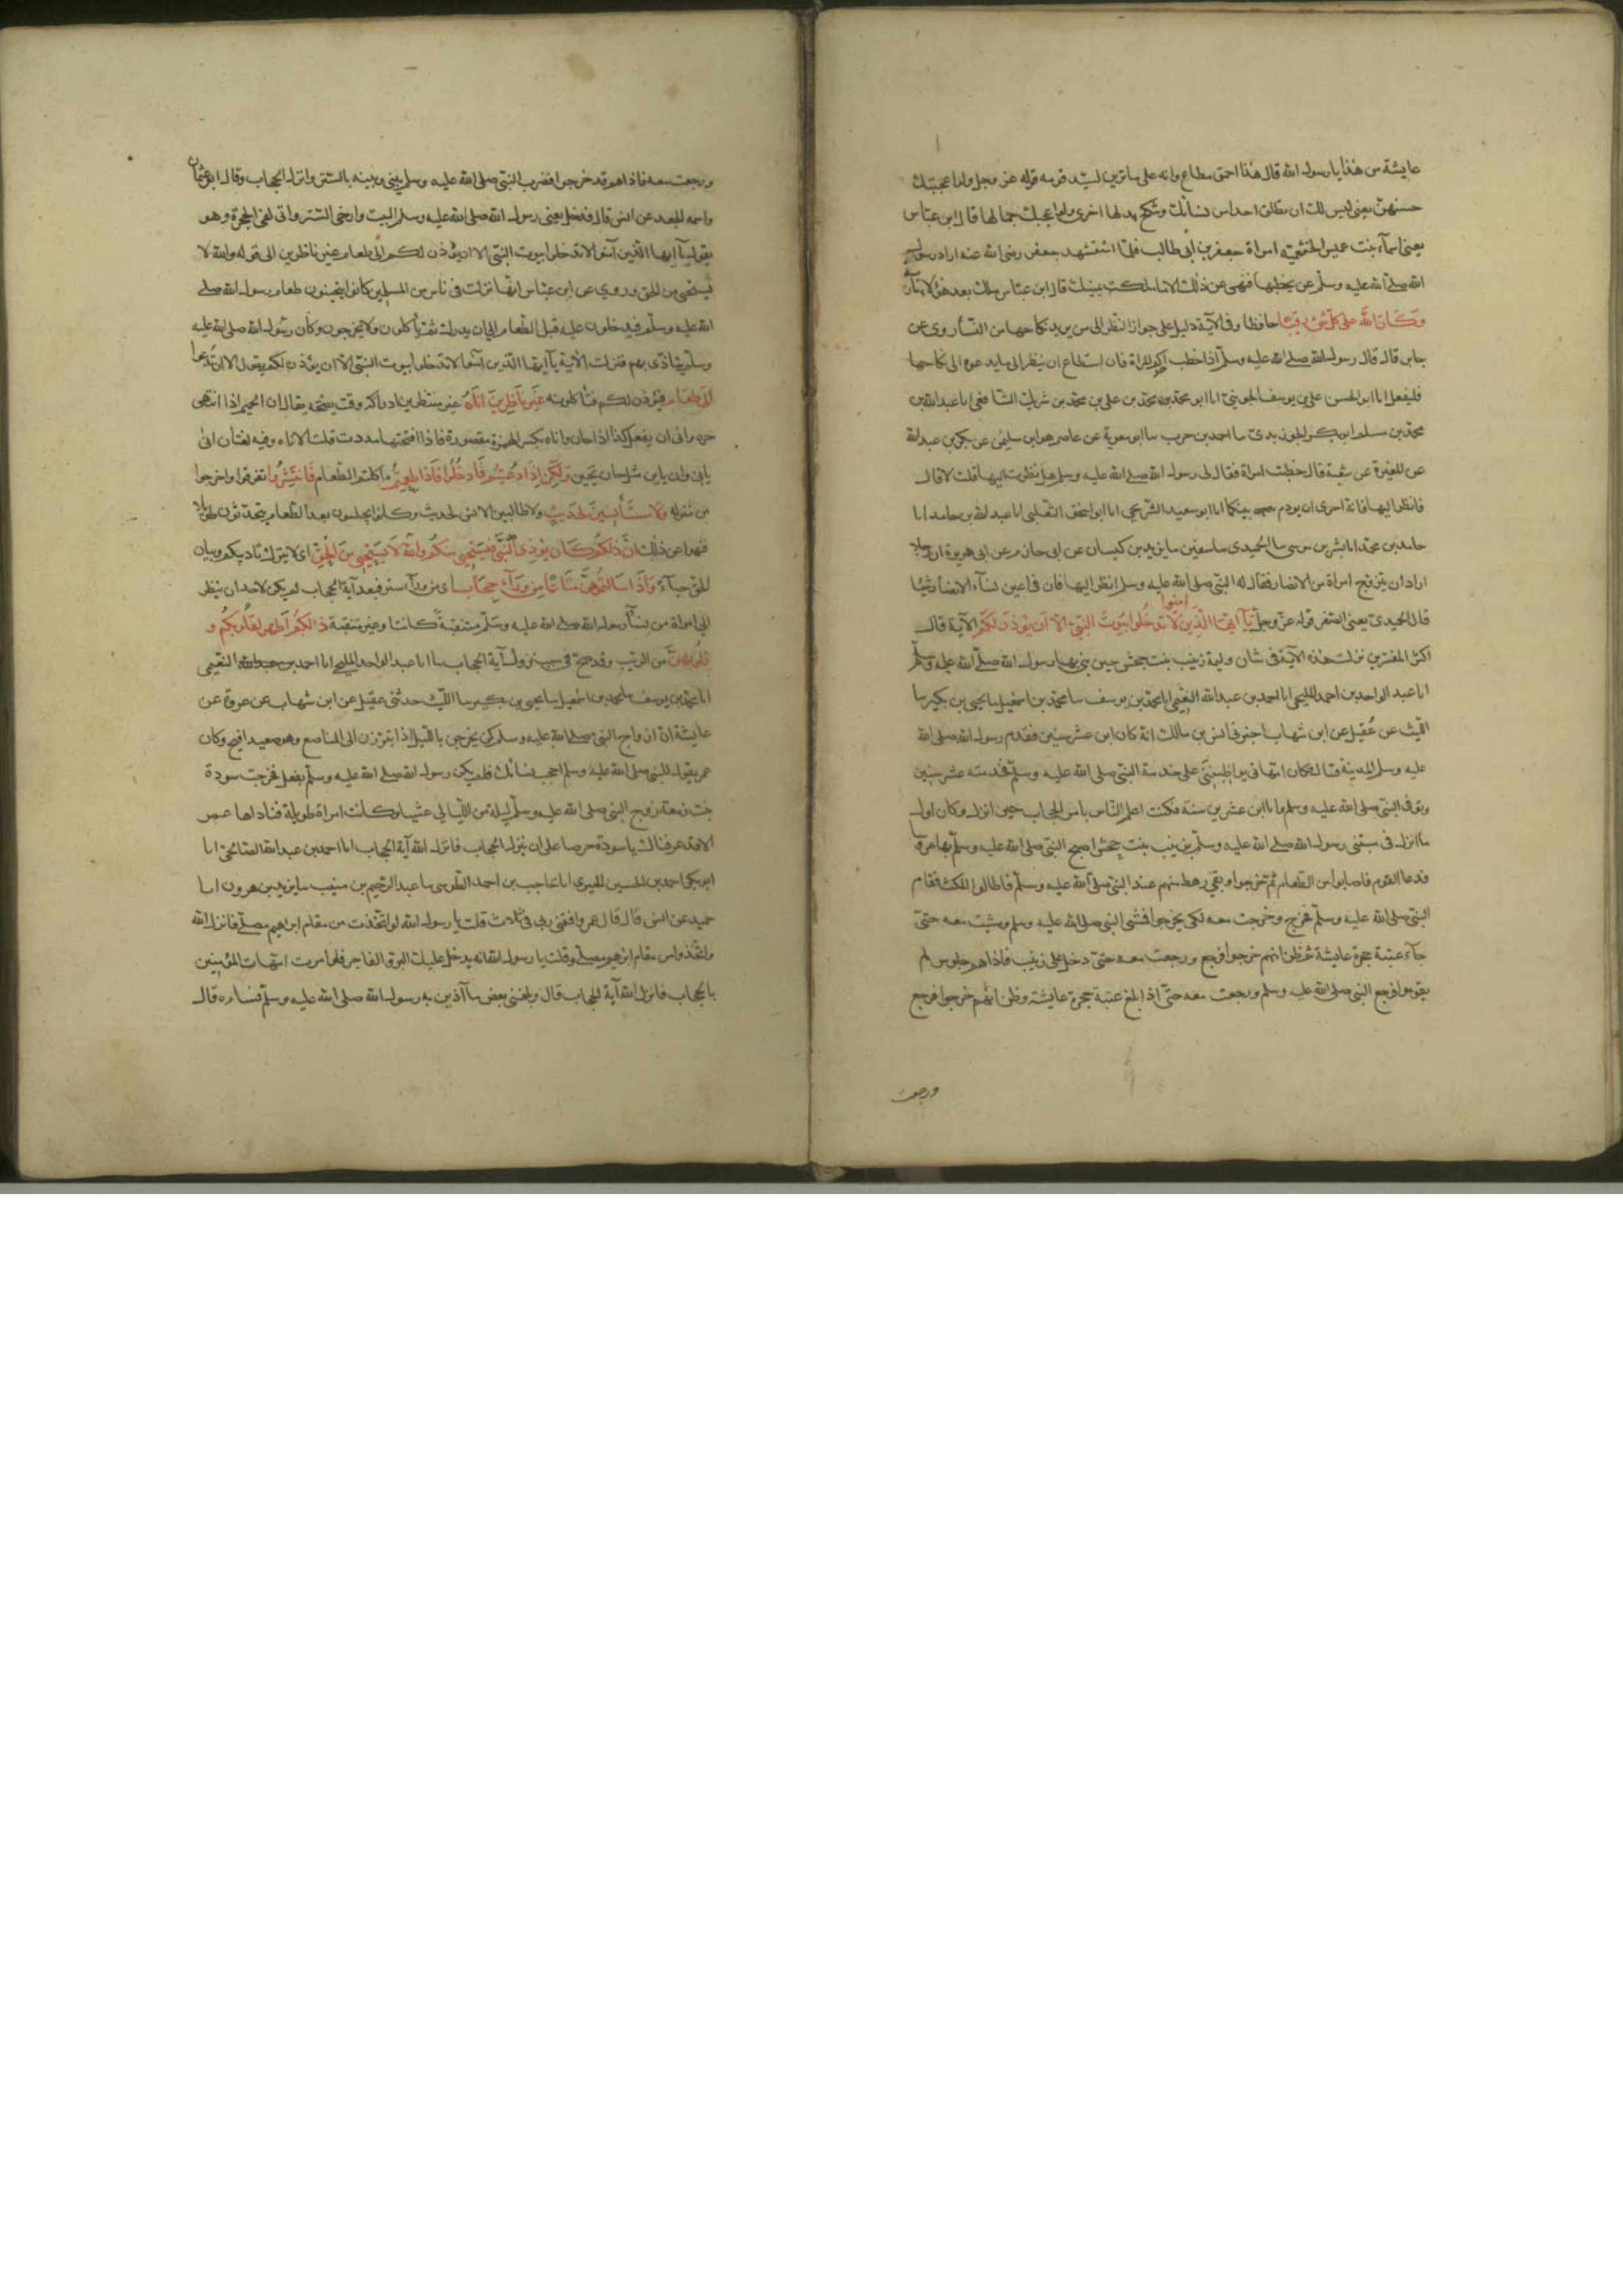 عايشة من هذا يا رسول الله قال هذا احمق مطاع وانه على ما ترين لسيد قومه قوله عز وجل ولو اعجبك
حسنهن يعنى ليس لك ان تطلق احدا من نسائك وتنكح بدلها اخرى ولو اعجبك جمالها قال ابن عباس
يعنى اسماء بنت عميس الخثعمية امراة جعفر بن ابى طالب فلما استشهد جعفر رضى الله عنه اراد رسول
الله صلى الله عليه وسلم ان يخطبها فنهى عن ذلك الا ما ملكت يمينك قال ابن عباس ملك بعد هؤلاء مارية
وكان الله على كل شىء رقيبا حافظا وفى الآية دليل على جواز النظر الى من يريد نكاحها من النساء روى عن
جابر قال قال رسول الله صلى الله عليه وسلم اذا خطب احدكم المراة فان استطاع ان ينظر الى ما يدعوه الى نكاحها
فليفعل انا ابو الحسن على بن يوسف الجوينى انا ابو محمد محمد بن على بن محمد بن شريك الشافعى انا عبد الله بن
محمد بن مسلم ابو بكر الجوربدى سا احمد بن حرب سا ابو معوية عن عاصم هو ابن سليمن عن بكر بن عبد الله
عن المغيرة بن شعبة قال خطبت امراة فقال لى رسول الله صلى الله عليه وسلم هل نظرت اليها قلت لا قال
فانظر اليها فانه احرى ان يودم بينكما انا ابو سعيد الشريحى انا ابو اسحق الثعلبى انا عبد الله بن حامد انا
حامد بن محمد انا بشر بن موسى سا الحميدى سا سفين سا يزيد بن كيسان عن ابى حازم عن ابى هريرة ان رجلا
اراد ان يتزوج امراة من الانصار فقال له النبى صلى الله عليه وسلم انظر اليها فان فى اعين نساء الانصار شيئا
قال الحميدى يعنى الصغر قوله عز وجل يا ايها الذين امنوا لا تدخلوا بيوت النبى الا ان يؤذن لكم الآية قال
اكثر المفسرين نزلت هذه الآية فى شان وليمة زينب بنت جحش حين بنى بها رسول الله صلى الله عليه وسلم
انا عبد الواحد بن احمد المليحى انا احمد بن عبد الله النعيمى انا محمد بن يوسف سا محمد بن اسمعيل سا يحيى بن بكير سا
الليث عن عقيل عن ابن شهاب اخبرنى انس بن مالك انه كان ابن عشر سنين مقدم رسول الله صلى الله
عليه وسلم المدينة قال فكان امهاتى يواظبننى على خدمة النبى صلى الله عليه وسلم فخدمته عشر سنين
وتوفى النبى صلى الله عليه وسلم وانا ابن عشرين سنة فكنت اعلم الناس بامر الحجاب حين انزل وكان اول
ما انزل فى مبتنى رسول الله صلى الله عليه وسلم بزينب بنت جحش اصبح النبى صلى الله عليه وسلم بها عروسا
فدعا القوم فاصابوا من الطعام ثم خرجوا وبقى رهط منهم عند النبى صلى الله عليه وسلم فاطالوا المكث فقام
النبى صلى الله عليه وسلم فخرج وخرجت معه لكى يخرجوا فمشى النبى صلى الله عليه وسلم ومشيت معه حتى
جاء عتبة حجرة عايشة ثم ظن انهم خرجوا فرجع ورجعت معه حتى دخل على زينب فاذا هم جلوس لم
يقوموا فرجع النبى صلى الله عليه وسلم ورجعت معه حتى اذا بلغ عتبة حجرة عايشة وظن انهم خرجوا فرجع
ورجعت
ورجعت معه فاذا هم قد خرجوا فضرب النبى صلى الله عليه وسلم بينى وبينه بالستر وانزل الحجاب وقال ابو عثمان
واسمه الجعد عن انس قال فدخل يعنى رسول الله صلى الله عليه وسلم البيت وارخى الستر وانى لفى الحجرة وهو
يقول يا ايها الذين آمنوا لا تدخلوا بيوت النبى الا ان يؤذن لكم الى طعام غير ناظرين الى قوله والله لا
يستحيى من الحق وروى عن ابن عباس انها نزلت فى ناس من المسلمين كانوا يتحينون طعام رسول الله صلى
الله عليه وسلم فيدخلون عليه قبل الطعام الى ان يدرك ثم ياكلون ولا يخرجون وكان رسول الله صلى الله عليه
وسلم يتاذى بهم فنزلت الآية يا ايها الذين آمنوا لا تدخلوا بيوت النبى الا ان يؤذن لكم يقول الا ان تدعوا
الى طعام فيؤذن لكم فتاكلونه غير ناظرين اناه غير منتظرين ادراكه وقت نضجه يقال انى الحميم اذا انتهى
حره وانى ان يفعل كذا اذا حان واناه بكسر الهمزة مقصورة فاذا فتحتها مددت قلت الاناء وفيه لغتان انى
يانى وان ياين مثل حان يحين ولكن اذا دعيتم فادخلوا فاذا طعمتم اكلتم الطعام فانتشروا تفرقوا واخرجوا
من منزله ولا مستأنسين لحديث ولا طالبين الانس لحديث وكانوا يجلسون بعد الطعام يتحدثون طويلا
فنهوا عن ذلك ان ذلكم كان يؤذى النبى فيستحيى منكم والله لا يستحيى من الحق اى لا يترك تاديبكم وبيان
الحق حياء واذا سالتموهن متاعا من وراء حجاب اى من وراء ستر فبعد آية الحجاب لم يكن لاحد ان ينظر
الى امراة من نساء رسول الله صلى الله عليه وسلم منتقبة كانت او غير منتقبة ذالكم اطهر لقلوبكم و
قلوبهن من الريب وقد صح فى سبب نزول آية الحجاب ما انا عبد الواحد المليحى انا احمد بن عبد الله النعيمى
انا محمد بن يوسف سا محمد بن اسمعيل سا يحيى بن بكير سا الليث حدثنى عقيل عن ابن شهاب عن عروة عن
عايشة ان ازواج النبى صلى الله عليه وسلم كن يخرجن بالليل اذا تبرزن الى المناصع وهو صعيد افيح وكان
عمر يقول للنبى صلى الله عليه وسلم احجب نسائك فلم يكن رسول الله صلى الله عليه وسلم يفعل فخرجت سودة
بنت زمعة زوج النبى صلى الله عليه وسلم ليلة من الليالى عشيا وكانت امراة طويلة فناداها عمر
الا قد عرفناك يا سودة حرصا على ان ينزل الحجاب فانزل الله آية الحجاب انا احمد بن عبد الله الصالحى انا
ابو بكر احمد بن الحسين الحيرى انا حاجب بن احمد الطوسى سا عبد الرحيم بن منيب سا يزيد بن هرون انا
حميد عن انس قال قال عمر وافقنى ربى فى ثلاث قلت يا رسول الله لو اتخذت من مقام ابراهيم مصلى فانزل الله
واتخذوا من مقام ابرهيم مصلى وقلت يا رسول الله انه يدخل عليك البر والفاجر فلو امرت امهات المؤمنين
بالحجاب فانزل الله آية الحجاب قال وبلغنى بعض ما آذين به رسول الله صلى الله عليه وسلم نساءه قال